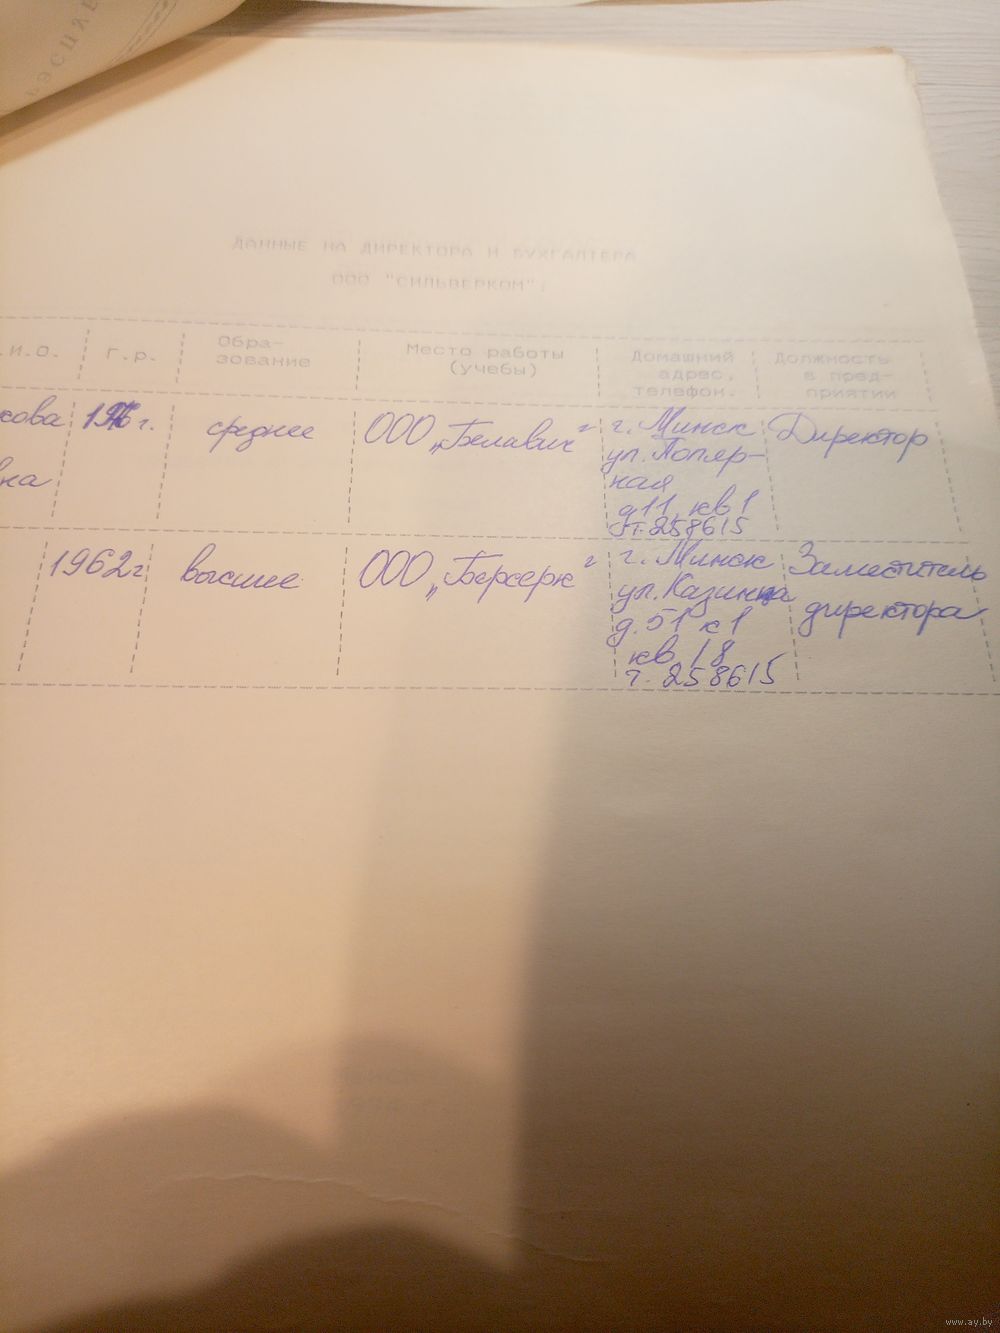 ДАННЫЕ НА ДИРЕКТОРА И БУХГАЛТЕРА
ООО "СИЛЬВЕРКОМ".
.И.О.
Г.Р.
Обра-
зование
Место работы
(учебы)
Домашний
адрес,
телефон.
Должность
в пред-
приятии
сова
вна
среднее
ООО „Белавич"
г. Минск
ул. Поляр-
ная
д 11, кв 1
т. 258615
Директор
1962г
высшее
ООО „Берсерк"
г. Минск
ул. Казинца
д. 51 к 1
кв 18
т. 258615
Заместитель
директора
www.ay.by